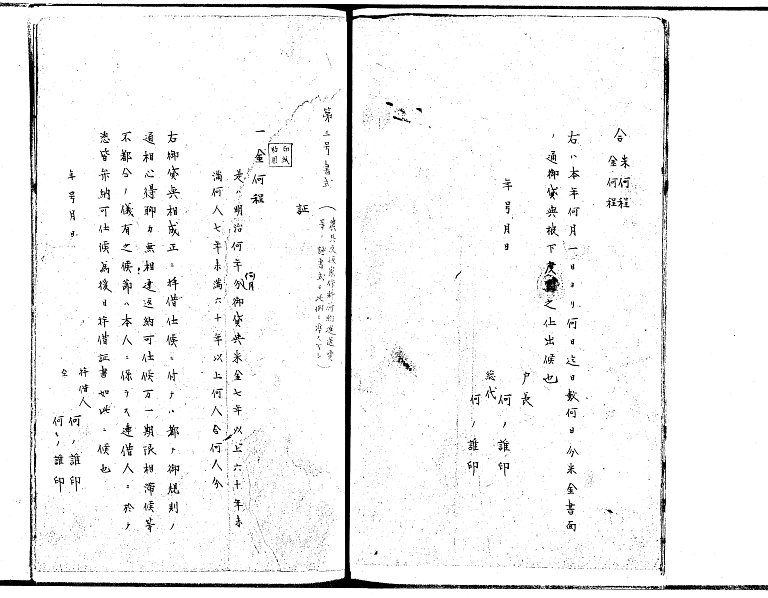 合 米何程
金何程
右ハ本年何月一日ヨリ何日迄日数何日分米金書面
ノ通御貸与被下度 之仕出候也
年号月日
戸長
何ノ誰印
総代
何ノ誰印
第二号書式
証
一金何程
印紙
貼用
是ハ明治何年何月分御貸与米金七年以上六十年未
満何人七年未満六十年以上何人合何人分
右御貸与相成正ニ拝借仕候ニ付テハ都テ御規則ノ
通相心得聊カ無相違返納可仕候万一期限相滞候等
不都合ノ儀有之候節ハ本人ニ係ラス連借人ニ於テ
悉皆弁納可仕候為後日拝借証書如此ニ候也
年号月日
拝借人
何ノ誰印
仝
何ノ誰印